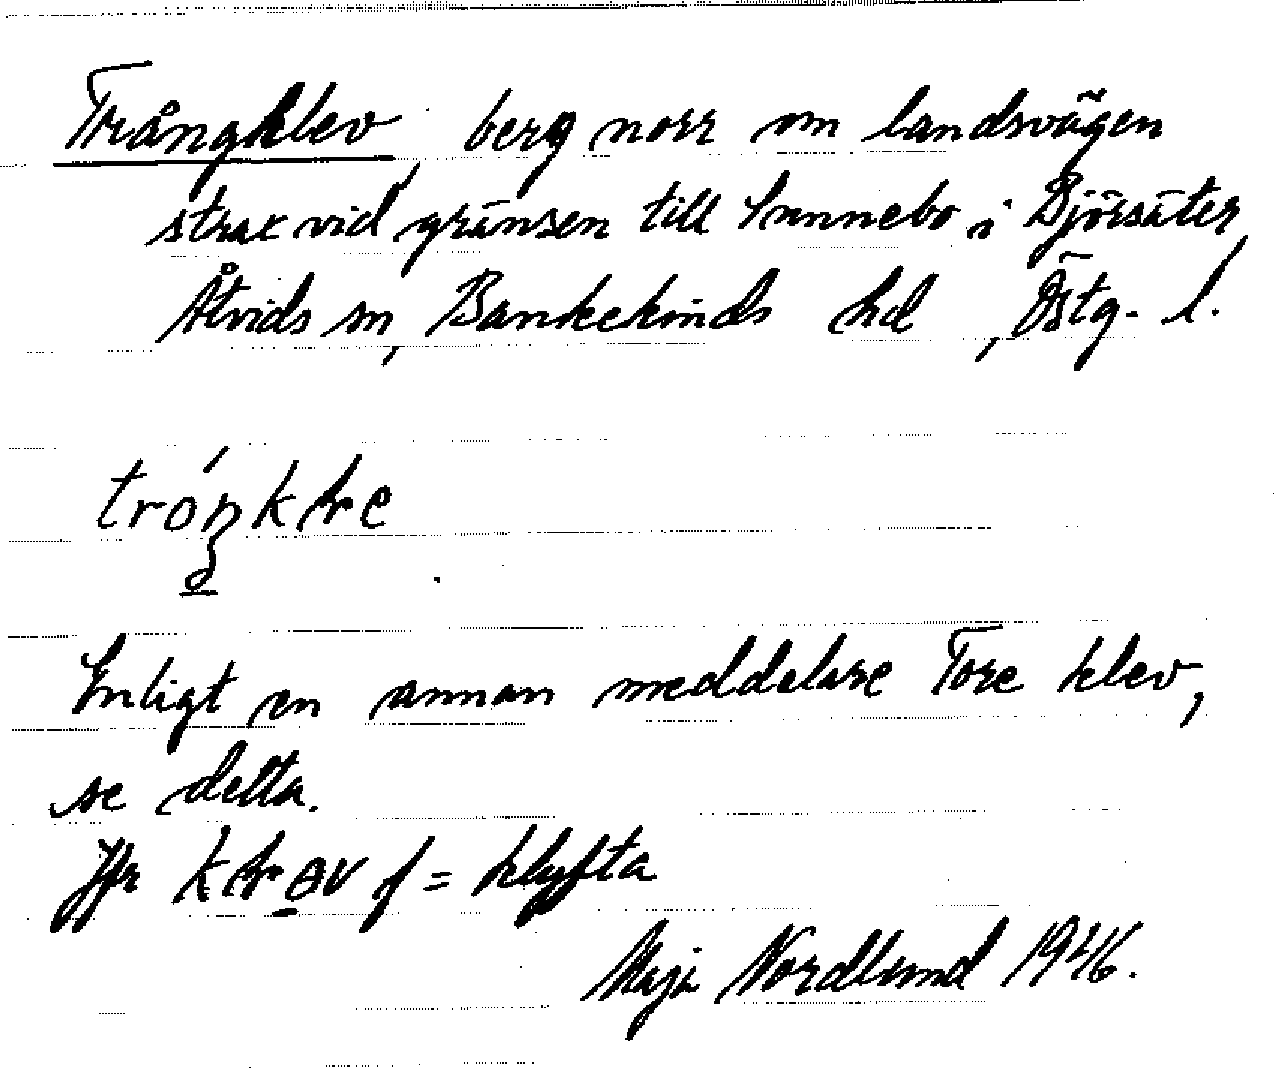 Trångklev, berg norr om landsvägen
strax vid gränsen till Sunnebo i Björsäter,
Åtvids sn, Bankekinds hd, Östg. l.
Enligt en annan meddelare Tore klev,
se detta.
Jfr f = klyfta
Maja Nordlund 1946.